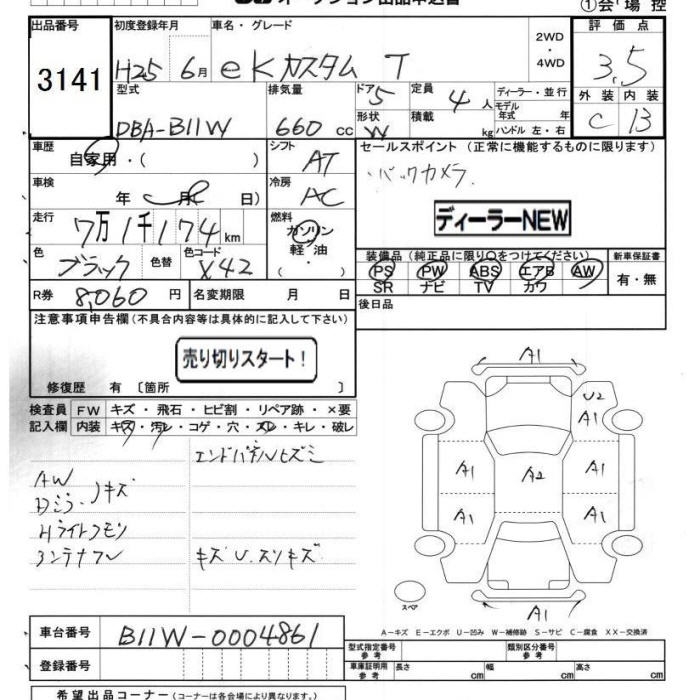 ①会「場 控
オークション出品申込書
出品番号
3141
初度登録年月
H25 6月
車名・グレード
eKカスタム T
2WD
・
4WD
評価点
3.5
外装 内装
C B
型式
DBA-B11W
排気量
660 cc
ドア 5
形状 W
定員 4人
積載 kg
ディーラー・並行
モデル年式 年
ハンドル 左・右
車歴
自家用・( )
シフト
AT
車検
年 月 日)
冷房
AC
走行
7万1千174km
燃料
ガソリン
・
軽油
( )
色
ブラック
色替
色コード
X42
セールスポイント (正常に機能するものに限ります)
バックカメラ
ディーラーNEW
装備品 (純正品に限り○をつけてください)
PS PW ABS エアB AW
SR ナビ TV カワ
新車保証書
有・無
R券 8,060 円
名変期限 月 日
後日品
注意事項申告欄(不具合内容等は具体的に記入して下さい)
売り切りスタート!
修復歴 有 〔箇所 〕
検査員
記入欄
FW キズ・飛石・ヒビ割・リペア跡・×要
内装 キズ・汚レ・コゲ・穴・スレ・キレ・破レ
エンドパネルヒズミ
AW
Dミラー キズ
Hライトクモリ
コンテナフレ キズ U. スリキズ
A1
U2
A1
A1 A2 A1
A1 A1
A1
スペア
A-キズ E-エクボ U-凹み W-補修跡 S-サビ C-腐食 XX-交換済
車台番号
B11W-0004861
登録番号
型式指定番号
参考
類別区分番号
参考
車庫証明用
参考
長さ cm
幅 cm
高さ cm
希望出品コーナー (コーナーは各会場により異なります。)